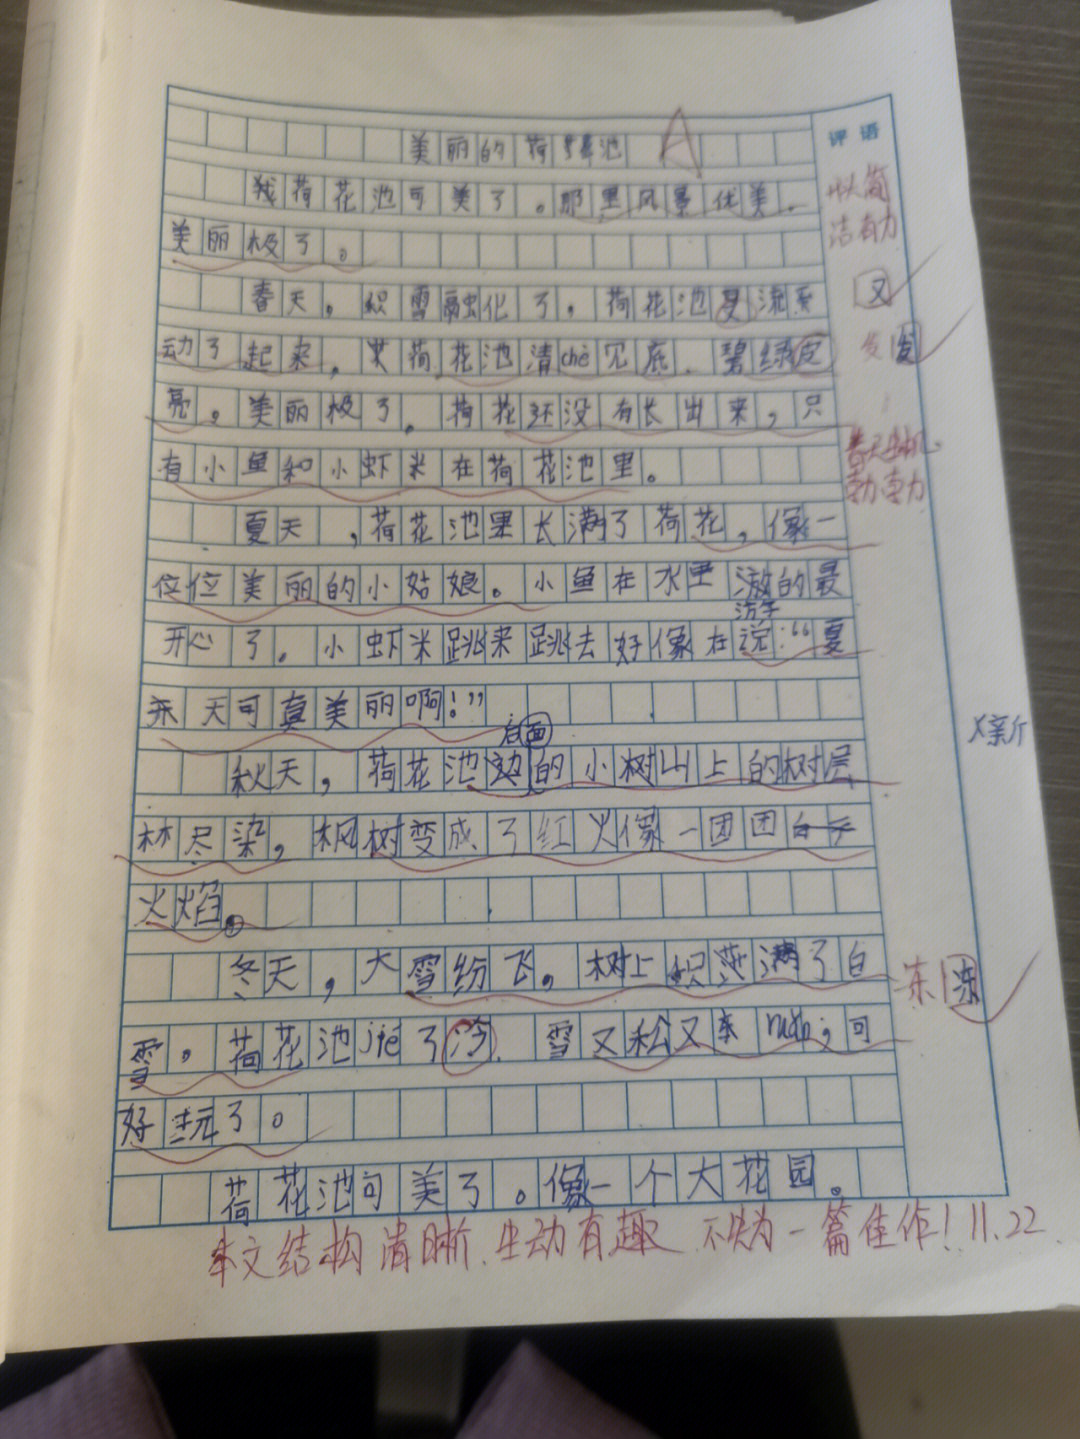 美丽的荷花池 A
评语
我荷花池可美了。那里风景优美，
简洁有力
美丽极了。
春天，织雪融化了，荷花池又流
又
动了起来，荷花池清chè见底，碧绿
发
亮，美丽极了。荷花还没有长出来，只
春天生机
勃勃
有小鱼和小虾米在荷花池里。
夏天，荷花池里长满了荷花，像一
位位美丽的小姑娘。小鱼在水里游的最
开心了。小虾米跳来跳去好像在说：“夏
天可真美丽啊！”
后面
秋天，荷花池边的小树山上的树层
林尽染，枫树变成了红火像一团团
火焰。
冬天，大雪纷飞，树上织满了白
冻
雪。荷花池jié了冷，雪又松又ruǎn，可
好玩了。
荷花池可美了。像一个大花园。
本文结构清晰，生动有趣，不失为一篇佳作！11.22